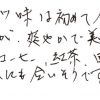 味は初めて
が、爽やかで美
コーヒー、紅茶、
にも合いそうです